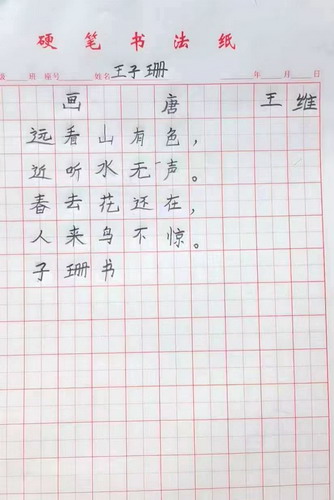 硬笔书法纸
级 班 座号 姓名 王子珊 年 月 日
画 唐 王维
远看山有色，
近听水无声。
春去花还在，
人来鸟不惊。
子珊书